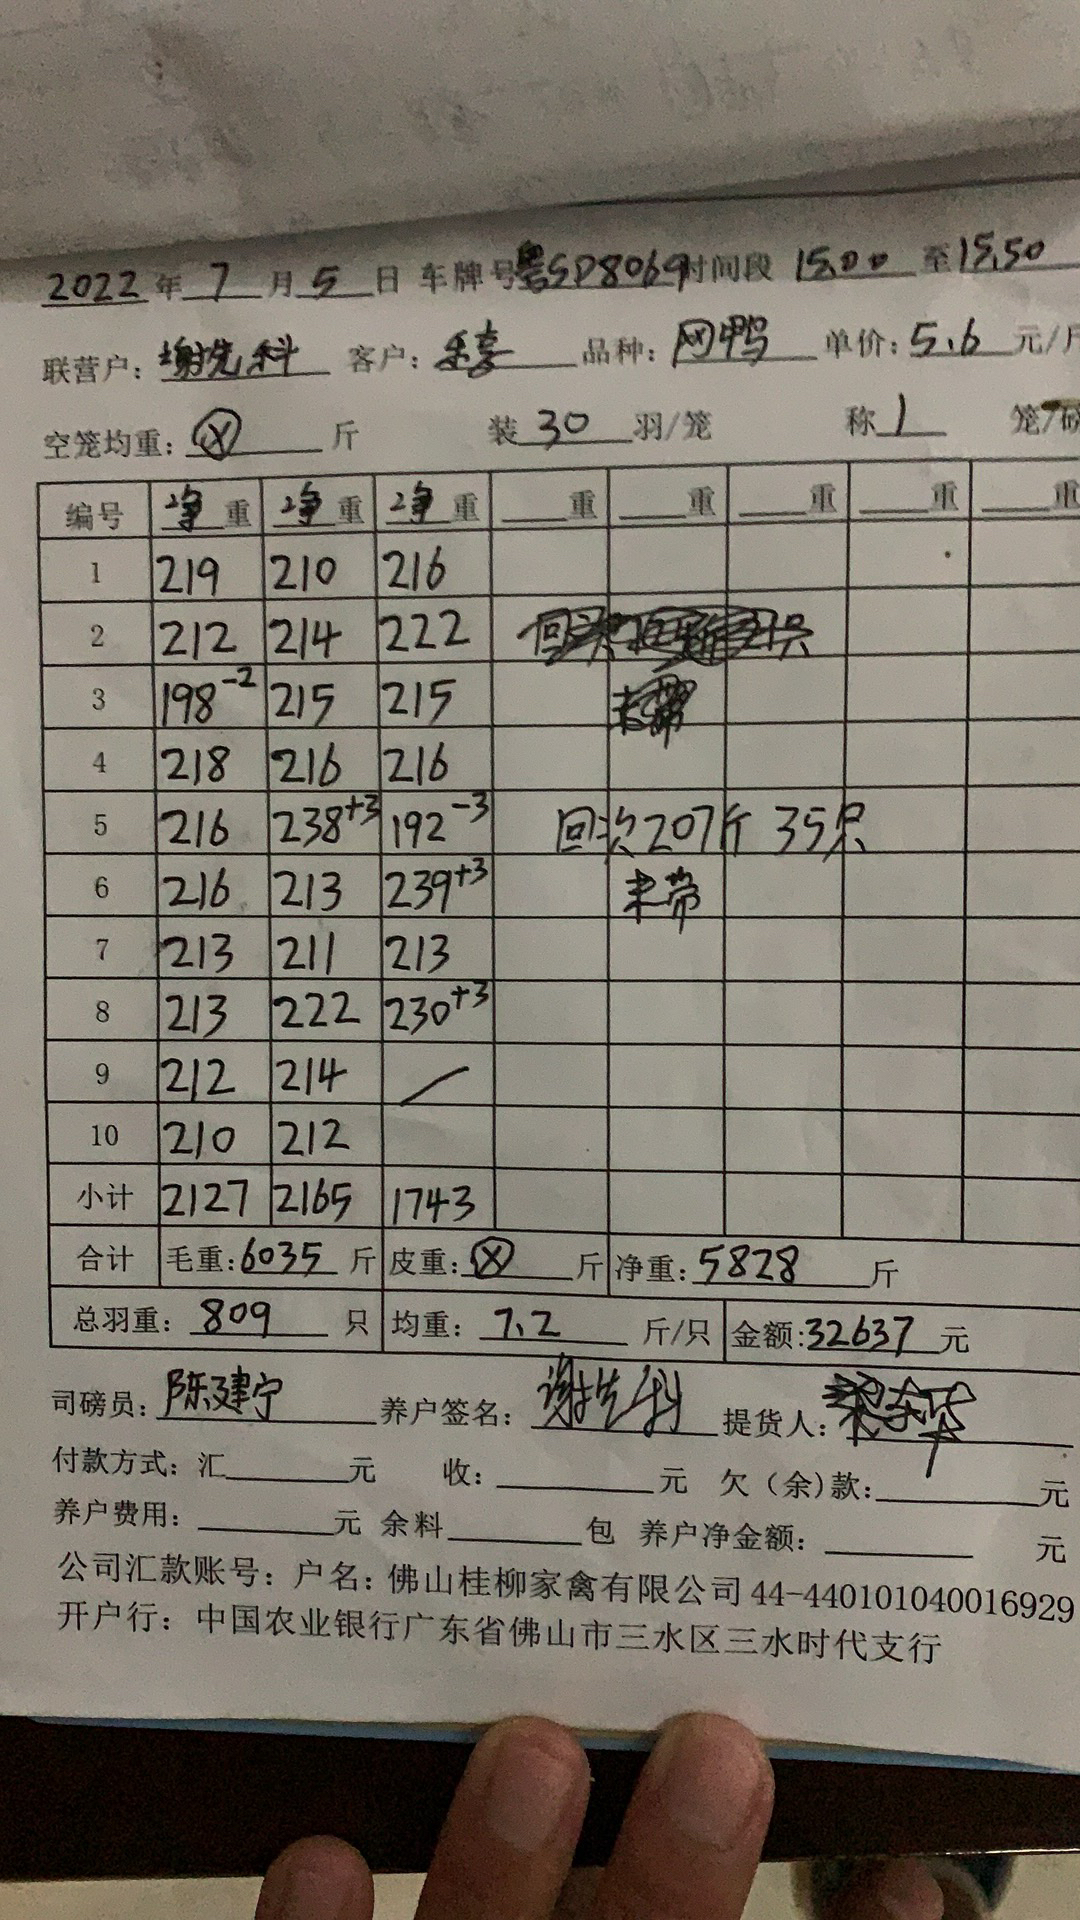 2022年7月5日 车牌号粤SD8069时间段 15:00 至15:50
联营户：谢先科 客户：乐喜 品种：网鸭 单价：5.6 元/斤
空笼均重：ⓧ 斤 装30 羽/笼 称1 笼/磅
编号 净重 净重 净重 重 重 重 重 重
1 219 210 216
2 212 214 222
3 198-2 215 215
4 218 216 216
5 216 238+3 192-3 回次207斤 35只
6 216 213 239+3 未带
7 213 211 213
8 213 222 230+3
9 212 214 /
10 210 212
小计 2127 2165 1743
合计 毛重：6035 斤 皮重：ⓧ 斤 净重：5828 斤
总羽重：809 只 均重：7.2 斤/只 金额：32637 元
司磅员：陈建宁 养户签名：谢先科 提货人：
付款方式：汇 元 收： 元 欠（余）款： 元
养户费用： 元 余料 包 养户净金额： 元
公司汇款账号：户名：佛山桂柳家禽有限公司 44-440101040016929
开户行：中国农业银行广东省佛山市三水区三水时代支行